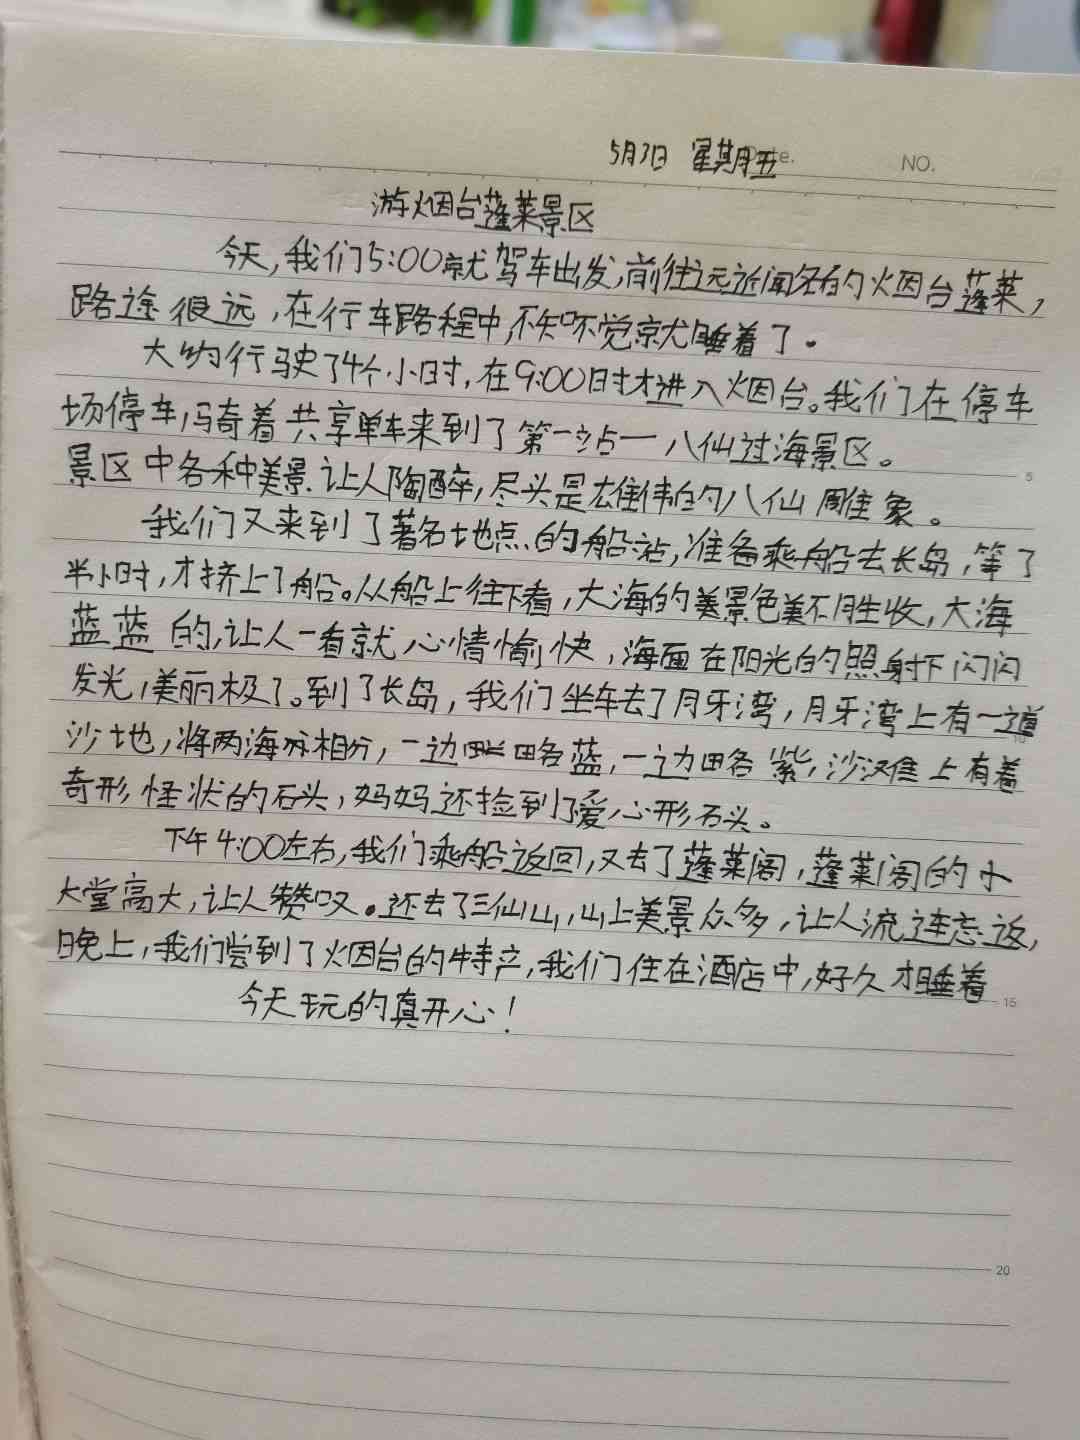 5月3日 星期五
Date.
NO.
游烟台蓬莱景区
今天,我们5:00就驾车出发,前往远近闻名的烟台蓬莱,
路途很远,在行车路程中,不知不觉就睡着了。
大约行驶了4个小时,在9:00时才进入烟台。我们在停车
场停车,骑着共享单车来到了第一站一八仙过海景区。
5
景区中各种美景让人陶醉,尽头是雄伟的八仙雕象。
我们又来到了著名地点的船站,准备乘船去长岛,等了
半小时,才挤上了船。从船上往下看,大海的美景色美不胜收,大海
蓝蓝的,让人一看就心情愉快,海面在阳光的照射下闪闪
发光,美丽极了。到了长岛,我们坐车去了月牙湾,月牙湾上有一道
10
沙地,将两海水相分,一边略蓝,一边略紫,沙滩上有着
奇形怪状的石头,妈妈还捡到了爱心形石头。
下午4:00左右,我们乘船返回,又去了蓬莱阁,蓬莱阁的小
大堂高大,让人赞叹。还去了三仙山,山上美景众多,让人流连忘返,
晚上,我们尝到了烟台的特产,我们住在酒店中,好久才睡着
15
今天玩的真开心!
20